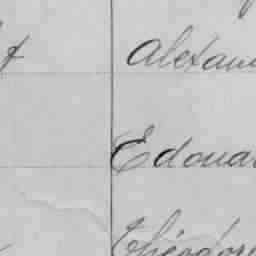 Alexan
Edouar
Théodor